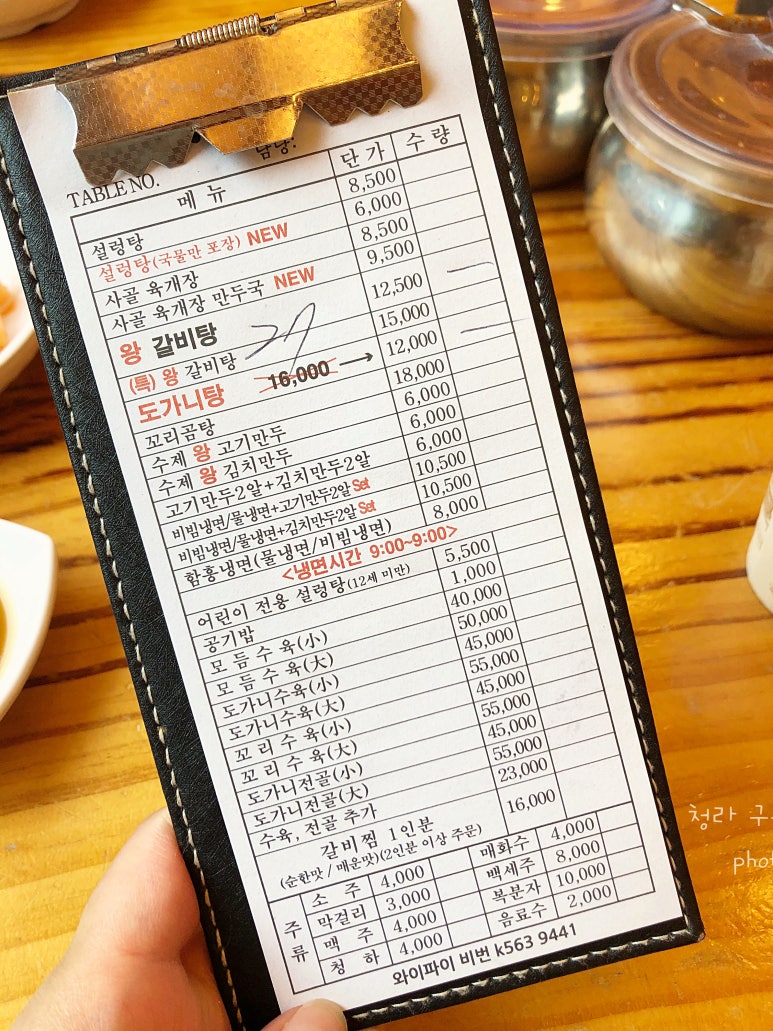 담당:
TABLE NO.
메 뉴 단 가 수 량
설렁탕 8,500
설렁탕(국물만 포장) NEW 6,000
사골 육개장 8,500
사골 육개장 만두국 NEW 9,500
왕 갈비탕 12,500
(특) 왕 갈비탕 15,000
도가니탕 16,000 → 12,000
꼬리곰탕 18,000
수제 왕 고기만두 6,000
수제 왕 김치만두 6,000
고기만두2알+김치만두2알 6,000
비빔냉면/물냉면+고기만두2알 Set 10,500
비빔냉면/물냉면+김치만두2알 Set 10,500
함흥냉면(물냉면/비빔냉면) 8,000
<냉면시간 9:00~9:00>
어린이 전용 설렁탕(12세 미만) 5,500
공기밥 1,000
모 듬 수 육(小) 40,000
모 듬 수 육(大) 50,000
도가니수육(小) 45,000
도가니수육(大) 55,000
꼬 리 수 육(小) 45,000
꼬 리 수 육(大) 55,000
도가니전골(小) 45,000
도가니전골(大) 55,000
수육, 전골 추가 23,000
갈비찜 1인분 16,000
(순한맛 / 매운맛)(2인분 이상 주문)
주류
소 주 4,000 매화수 4,000
막걸리 3,000 백세주 8,000
맥 주 4,000 복분자 10,000
청 하 4,000 음료수 2,000
와이파이 비번 k563 9441
청라